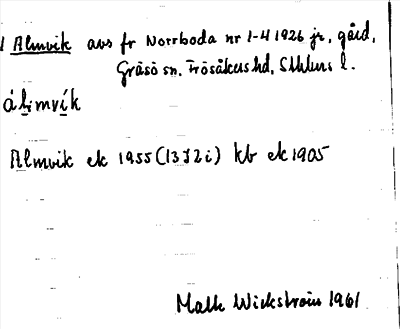 1 Almvik avs fr Norrboda nr 1-4 1926 jr, gård,
Gräsö sn, Frösåkers hd, Sthlms l.
álmvík
Almvik ek 1955 (13I2i) kb ek 1905
Mats Wickström 1961